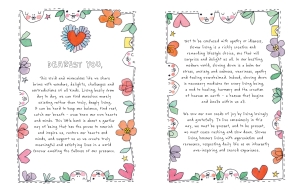 DEAREST YOU,
This world and ourselves like us share
brims with wonders, delights, challenges and
contradictions of all kinds. Living busily from
day to day, we can find ourselves merely
existing rather than truly, deeply living.
It can be hard to keep our balance, find rest,
catch our breath – even know our own hearts
and minds. This little book is about a gentle
way of being that has the power to nourish
and inspire us, revive our hearts and
minds, and support us as we create truly
meaningful and satisfying lives in a world
awaiting the fullness of our presence.
Not to be confused with apathy or idleness,
Slow living is a richly creative and
rewarding lifestyle choice, one that will
surprise and delight us all. In our bustling
modern world, slowing down is a balm for
stress, anxiety and sadness, weariness, apathy
and feeling overwhelmed. Indeed, slowing down
is necessary medicine for every living being,
a aid to healing, harmony and the creation
of heaven on earth – a heaven that begins
and builds within us all.
We sow our own seeds of joy by living lovingly
and gratefully. To live consciously in this
way, we must be present, and to be present,
we must cease rushing and slow down. Slower
living honours living with appreciation and
reverence, regarding daily life as an intensely
awe-inspiring and sacred experience.